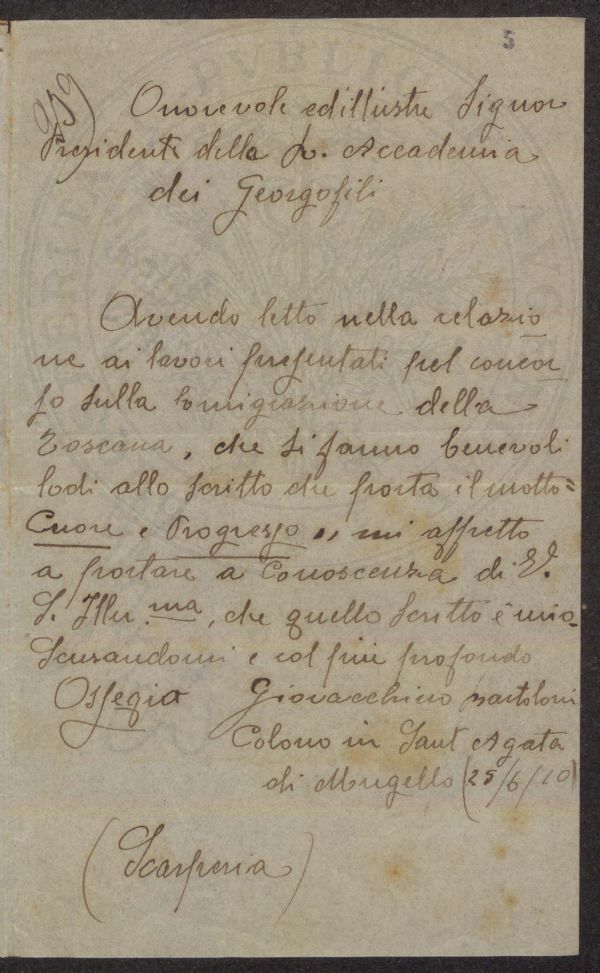 5
939)
Onorevole ed illustre Signor
Presidente della R. Accademia
dei Georgofili
Avendo letto nella relazio
ne ai lavori presentati pel concor
so sulla Emigrazione della
Toscana, che si fanno benevoli
lodi allo scritto che porta il motto=
Cuore e Progresso ,, mi affretto
a portare a conoscenza di V.
S. Illu.ma, che quello scritto è mio.
Scusandomi e col più profondo
Ossequio Giovacchino Bartoloni
Colono in Sant Agata
di Mugello (25/6/10)
(Scarperia)